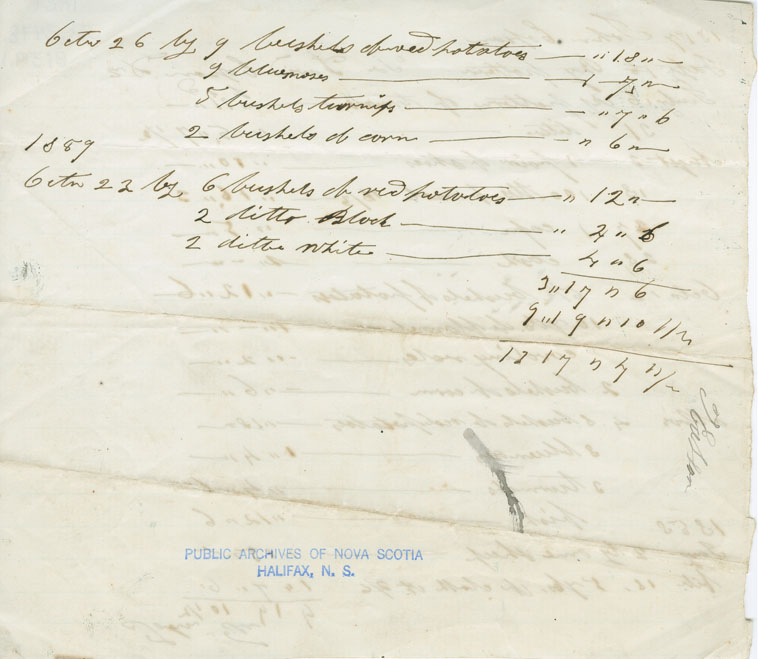 Octr 26 by 9 bushels of red potatoes — " 18 " —
9 bluenoses — 1 7 " —
5 bushels turnips — " 7 " 6
2 bushels of corn — " 6 " —
1859
Octr 22 by 6 bushels of red potatoes — " 12 " —
2 ditto Black — " 4 " 6
2 ditto White — 4 " 6
3 " 17 " 6
9 " 19 " 10 1/2
13 17 " 4 " 1/2
PUBLIC ARCHIVES OF NOVA SCOTIA
HALIFAX, N. S.